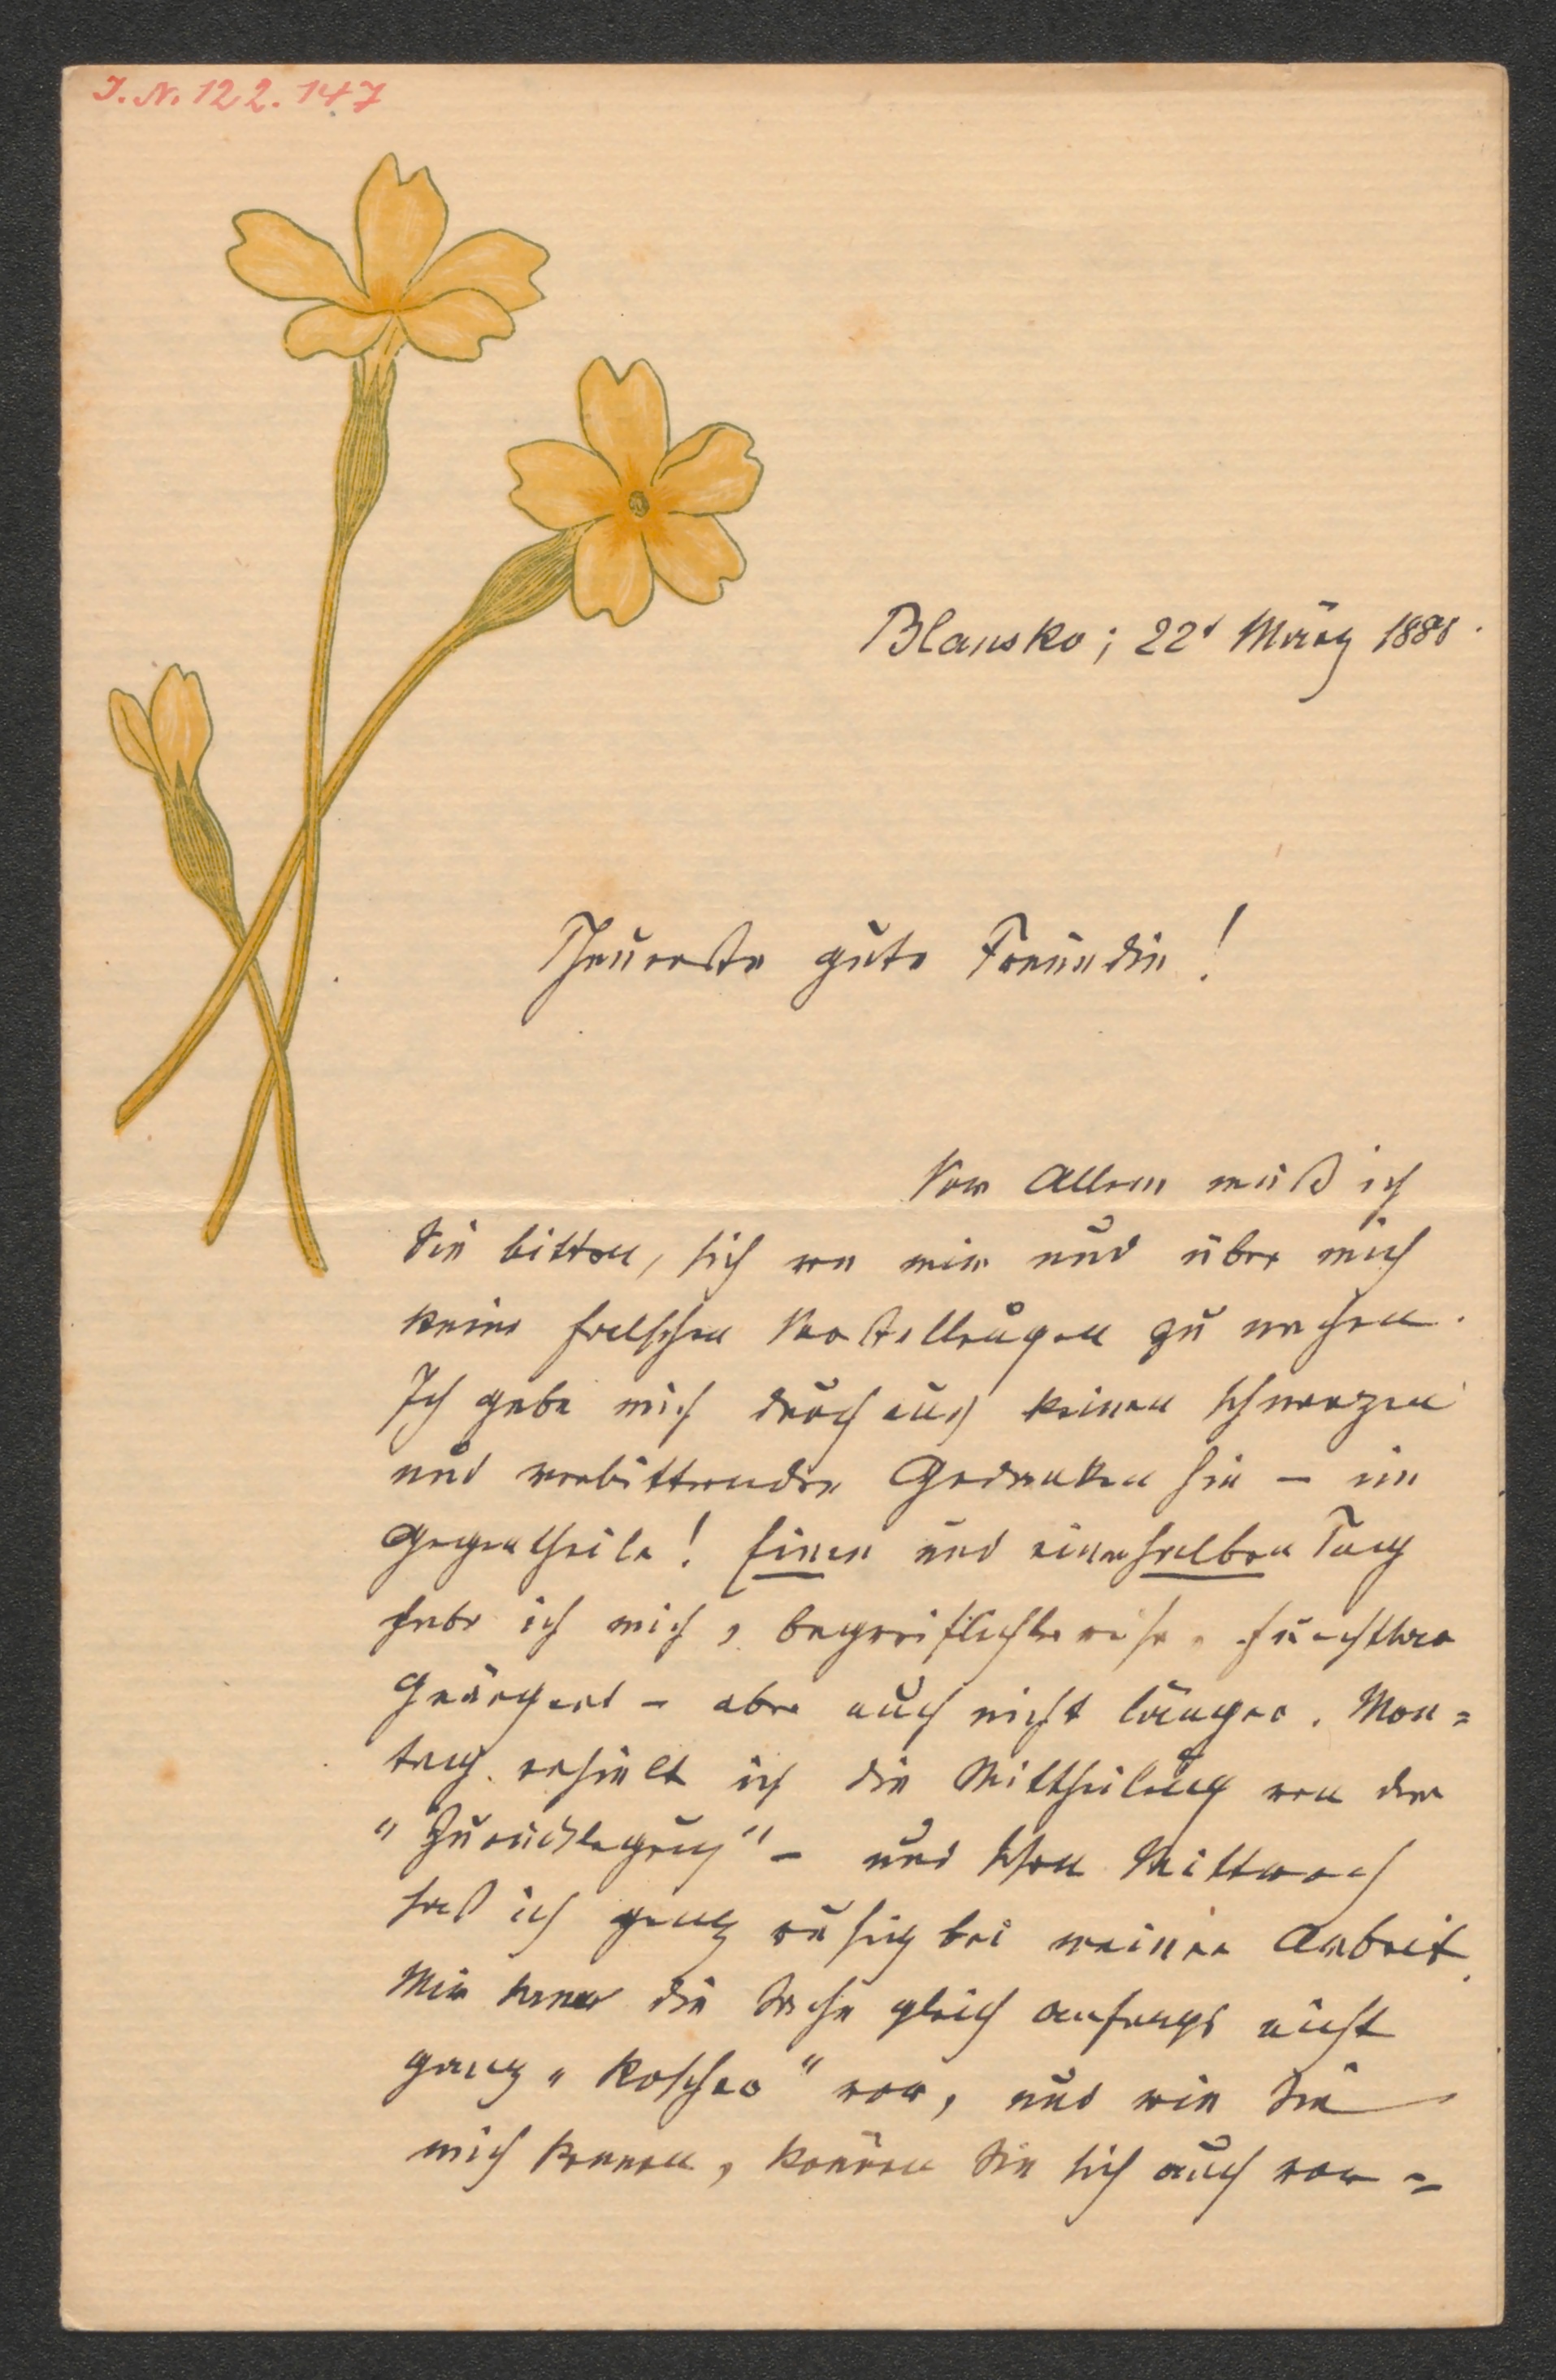 J. N. 122.147
Blansko; 22t März 1888.
Theuerste gute Freundin!
Vor Allem muß ich
Sie bitten, sich von mir und über mich
keine falschen Vorstellungen zu machen.
Ich gebe mich durchaus keinen schwarzen
und verbitternden Gedanken hin – im
Gegentheile! Einen und einenhalben Tag
habe ich mich, begreiflicherweise, furchtbar
geärgert – aber auch nicht länger. Mon=
tag erhielt ich die Mittheilung von der
"Zurücklegung" – und schon Mittwoch
saß ich ganz ruhig bei meiner Arbeit.
Mir kam die Sache gleich anfangs nicht
ganz "koscher" vor, und wie Sie
mich kennen, können Sie sich auch vor=